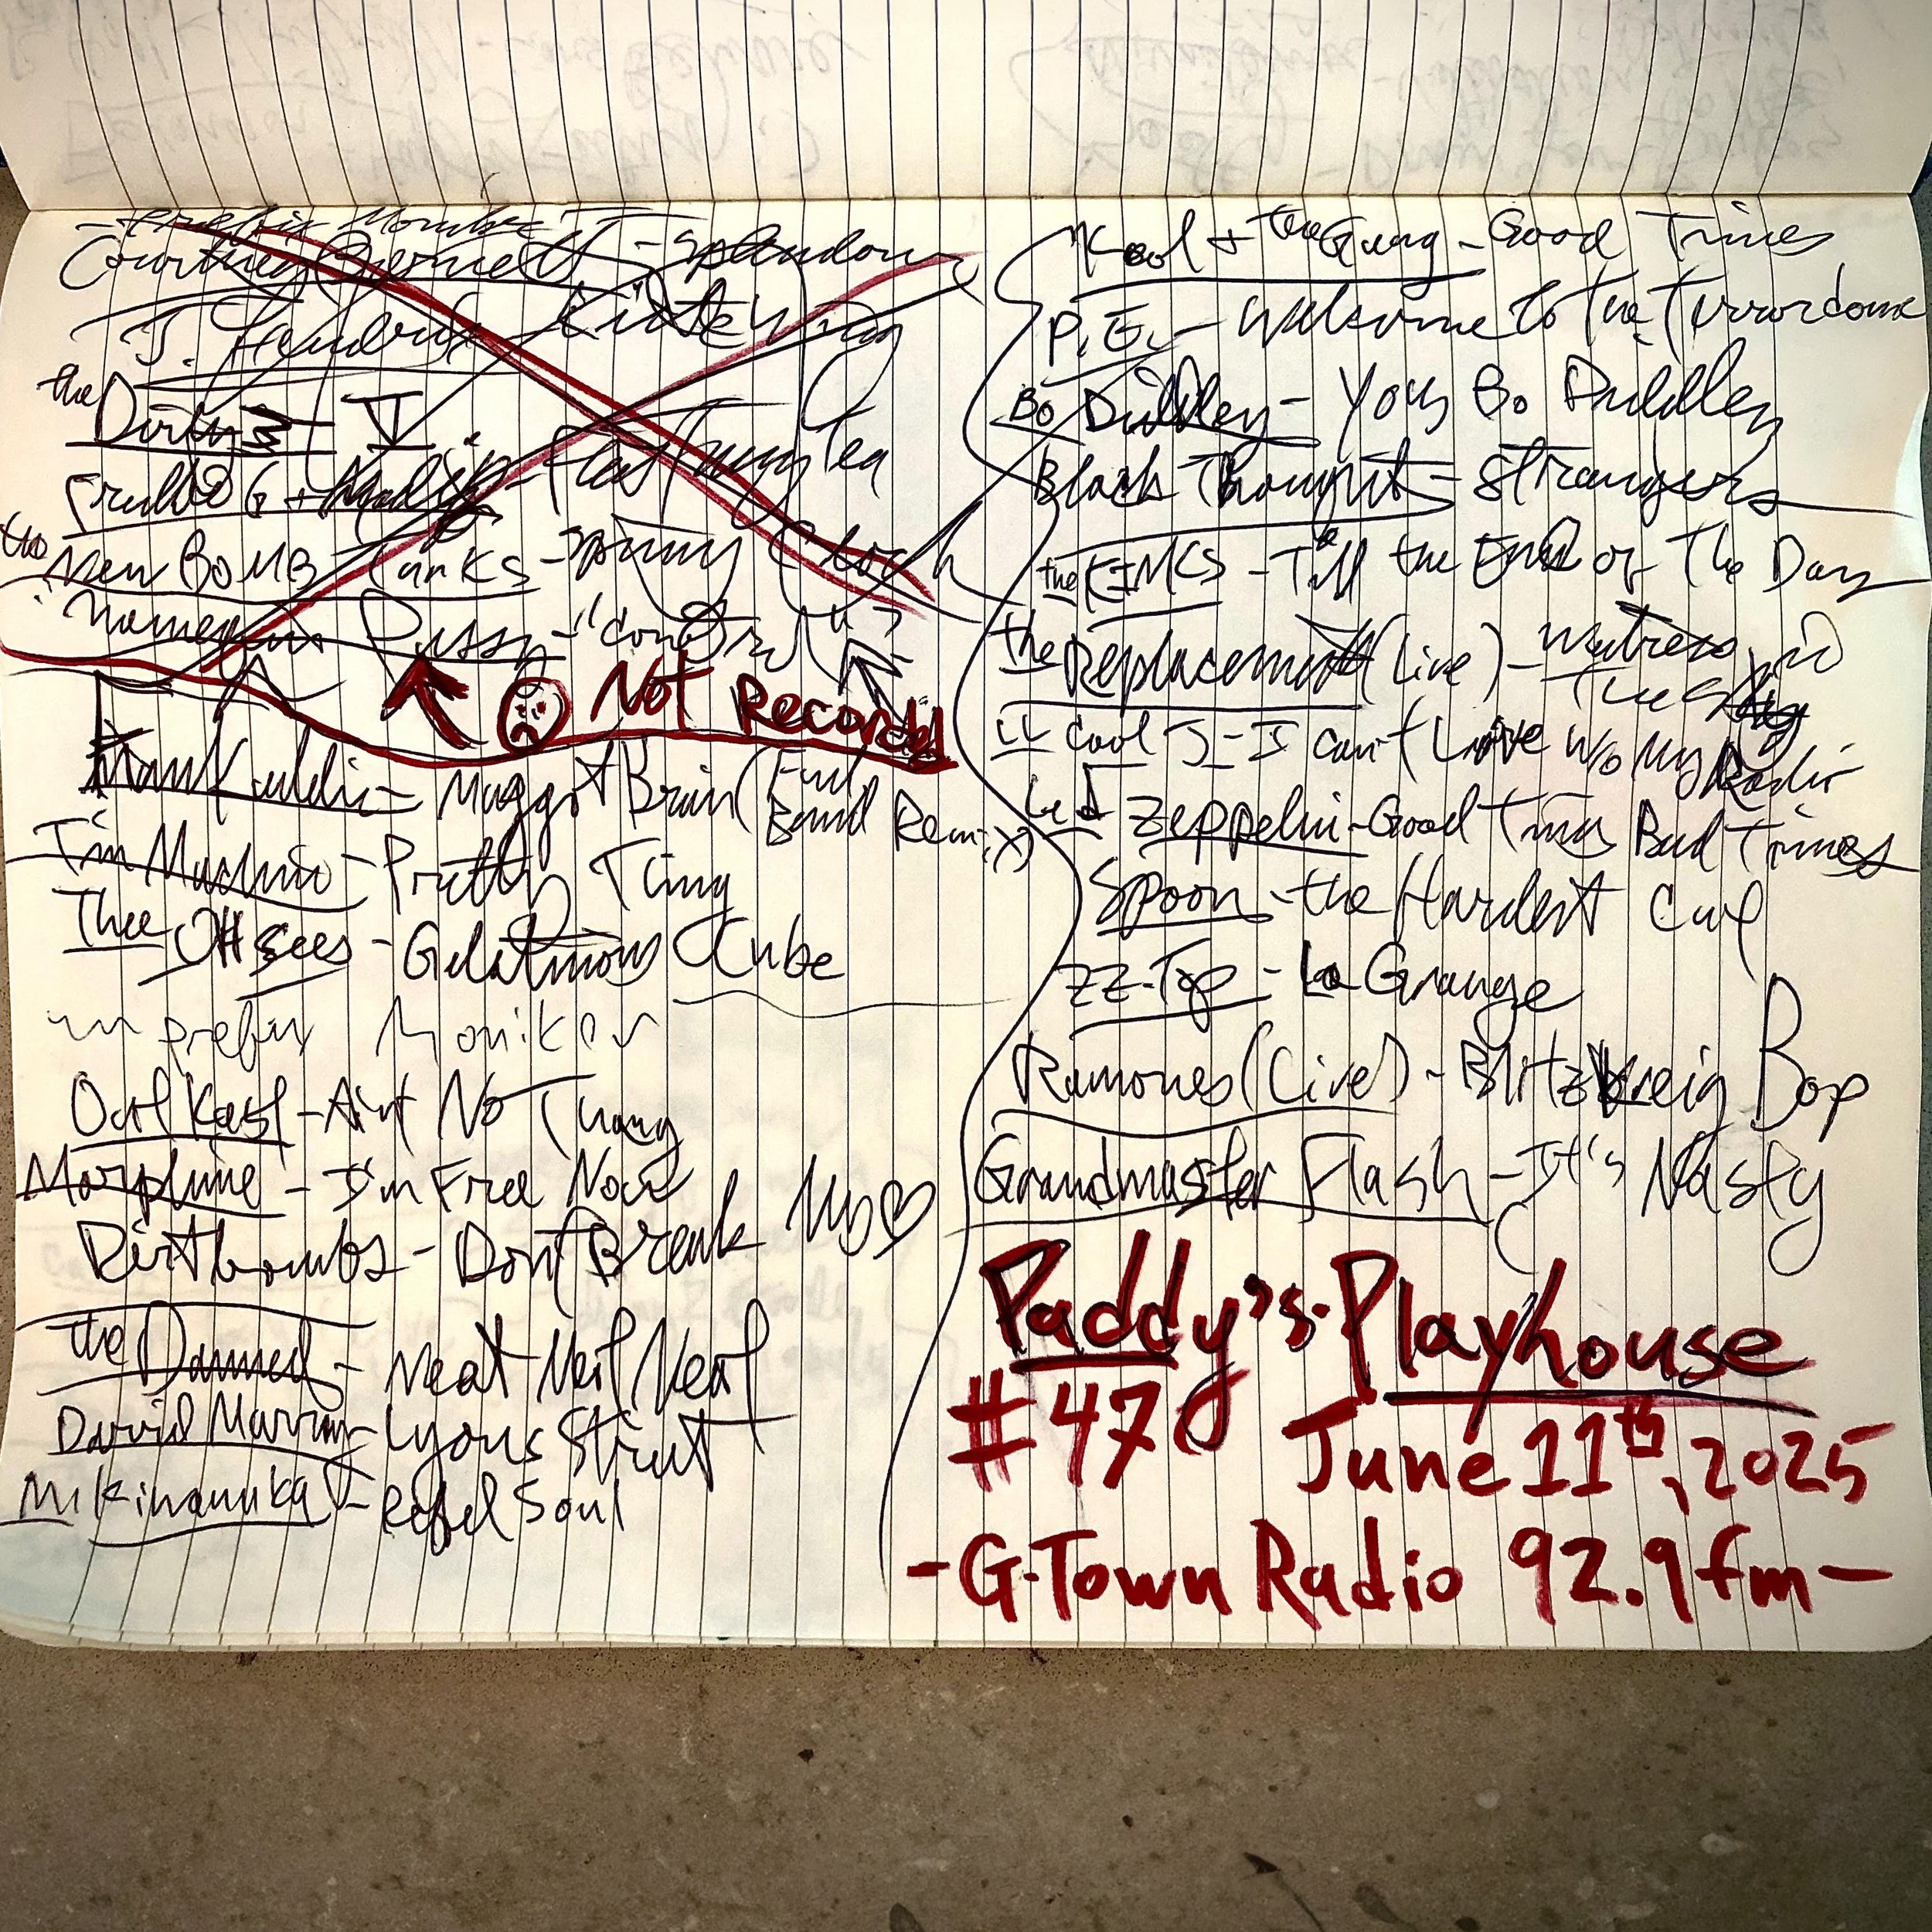 Prefix
Courtney Barnett - Splendour
J. Hendrix -
the Dirty - V
Freddie G + Madlib - Flat Tummy Tea
New BOMB Turks - Spinny Clock
Pussy - "
Not Recorded
Funkadelic - Maggot Brain (Full
Band Remix)
Tin Machine - Pretty Thing
Thee Oh Sees - Gelatinous Cube
prefix Moniker
OutKast - Aint No Thang
Morphine - I'm Free Now
Dirtbombs - Dont Break My ♡
the Damned - Neat Neat Neat
David Murray - Lyons Street
M Kiwanuka - Rebel Soul
Kool + the Gang - Good Times
P.E. - Welcome to the Terrordome
Bo Diddley - You Bo Diddley
Black Thought - Strangers
the KINKS - Till the End of The Day
the Replacements (live) - in
The
LL Cool J - I can't Live w/o My Radio
Led Zeppelin - Good Times Bad Times
Spoon - the Hardest Cut
ZZ-Top - La Grange
Ramones (Live) - Blitzkreig Bop
Grandmaster Flash - It's Nasty
Paddy's Playhouse
#47 June 11th, 2025
- G-Town Radio 92.9 fm -